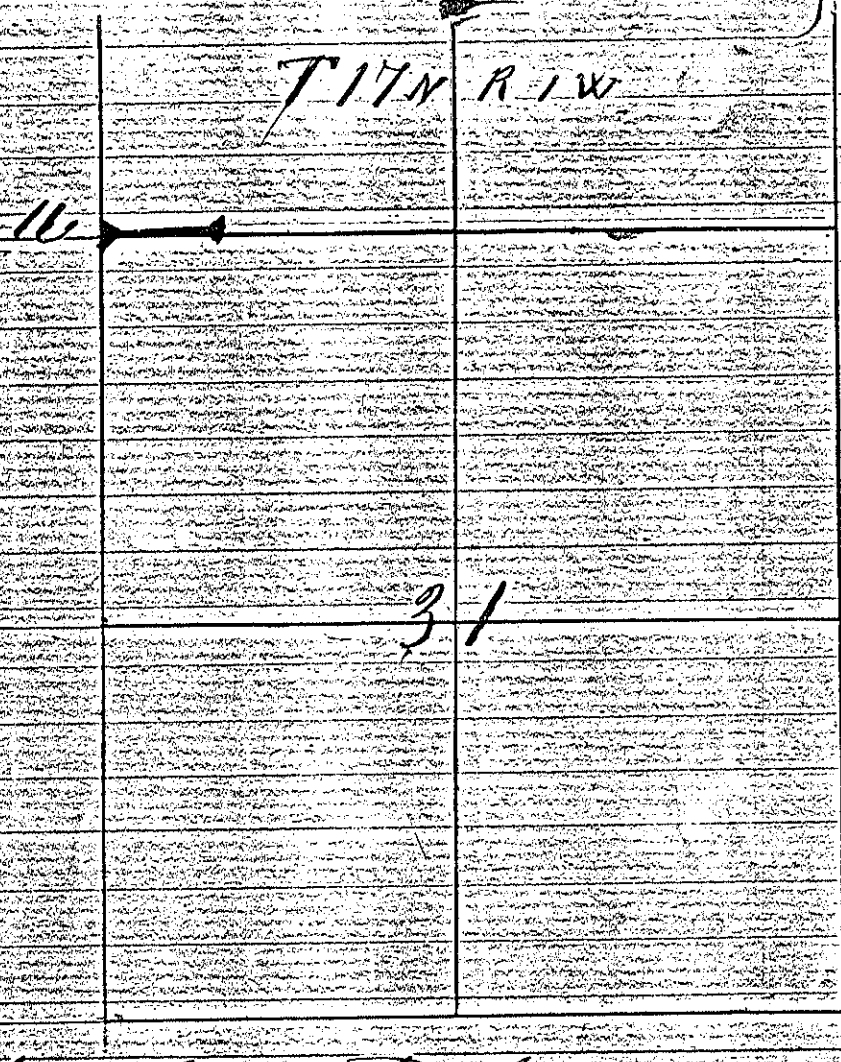 T 17 N R 1 W
16
31